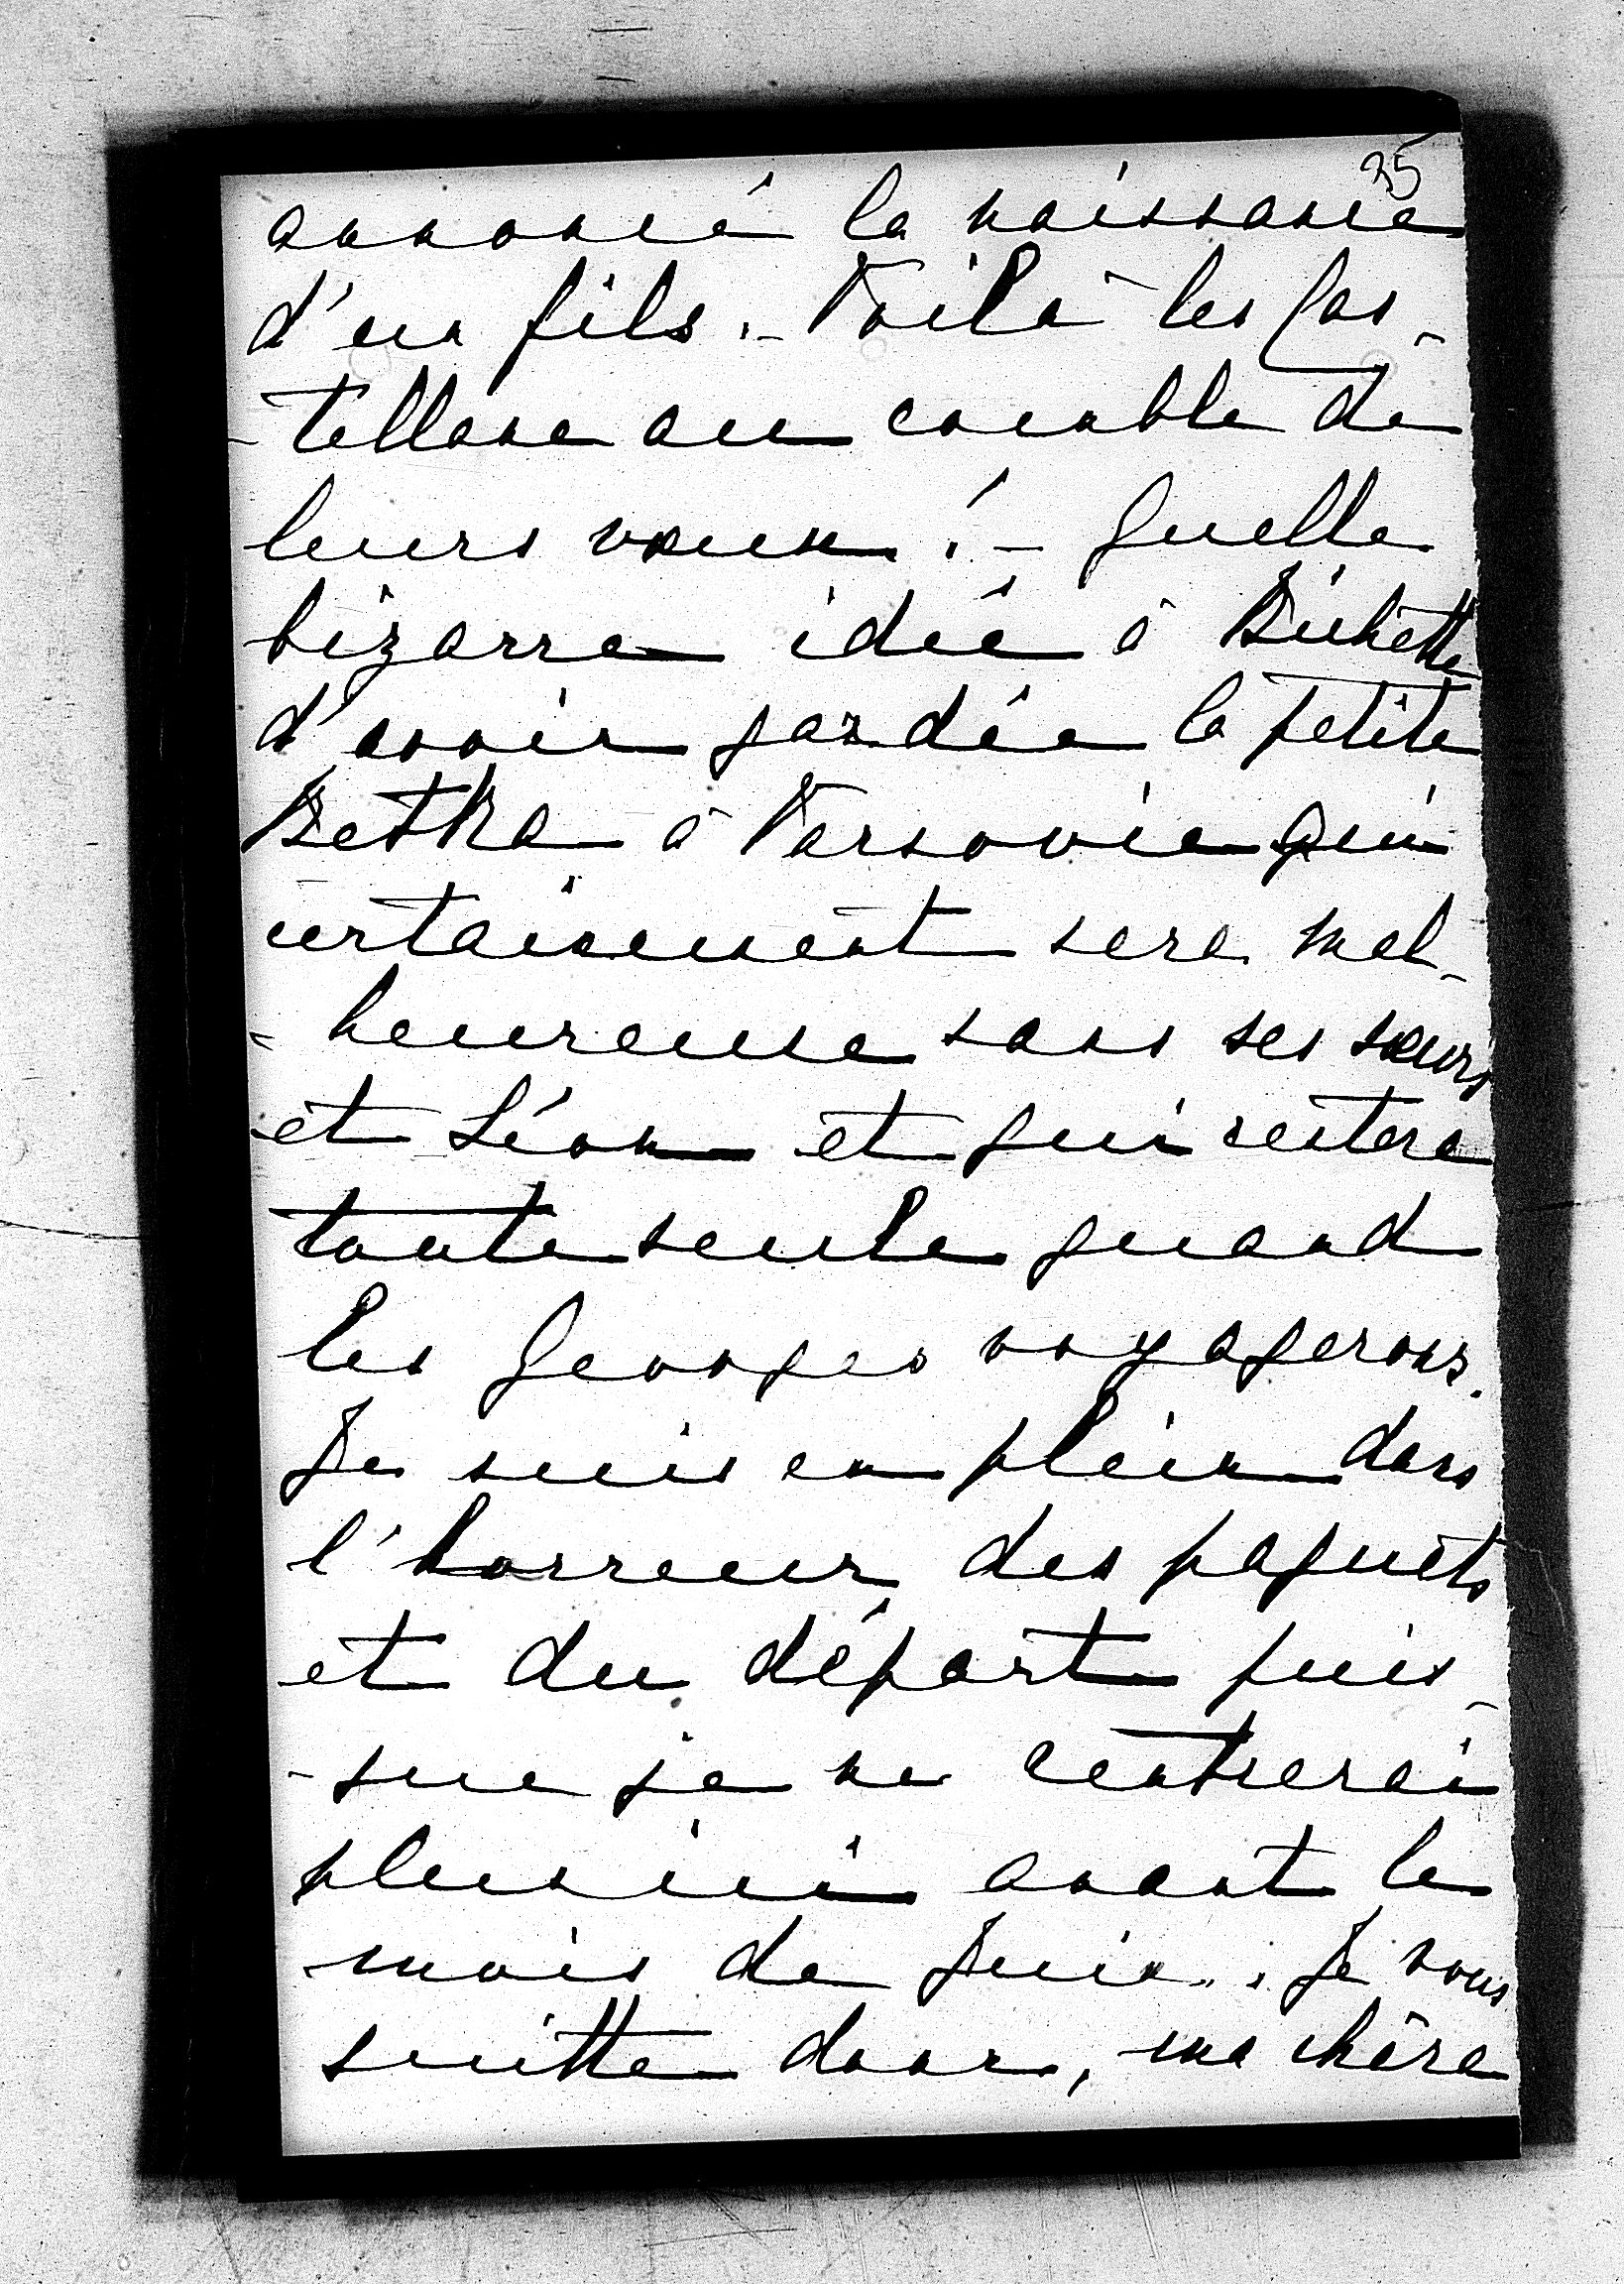 35
annoncé la naissance
d'un fils. - Voilà les Cas-
-tellane au comble de
leurs vœux ! - Quelle
bizarre idée à Bichette
d'avoir gardée la petite
Betka à Varsovie qui
certainement sera mal-
-heureuse sans ses sœurs
et Léon et qui restera
toute seule quand
les Georges voyagerons.
Je suis en plein dans
l'horreur des paquets
et du départ puis-
-que je ne rentrerai
plus ici avant le
mois de Juin. . Je vous
quitte donc, ma chère